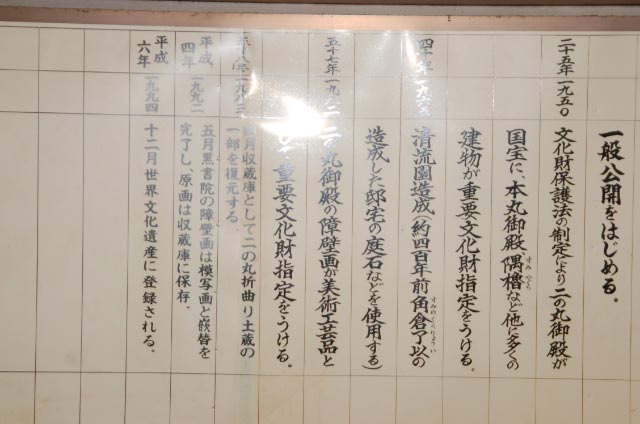 一般公開をはじめる。
二十五年 一九五〇 文化財保護法の制定により二の丸御殿が
国宝に、本丸御殿、隅櫓など他に多くの
すみ やぐら
建物が重要文化財指定をうける。
四十年 一九六五 清流園造成(約四百年前角倉了以の
すみのくらりょうい
造成した邸宅の庭石などを使用する)
五十七年 一九八二 二の丸御殿の障壁画が美術工芸品と
して重要文化財指定をうける。
五十八年 一九八三 四月収蔵庫として二の丸折曲り土蔵の
一部を復元する。
平成四年 一九九二 五月黒書院の障壁画は模写画と嵌替を
完了し、原画は収蔵庫に保存。
平成六年 一九九四 十二月世界文化遺産に登録される。